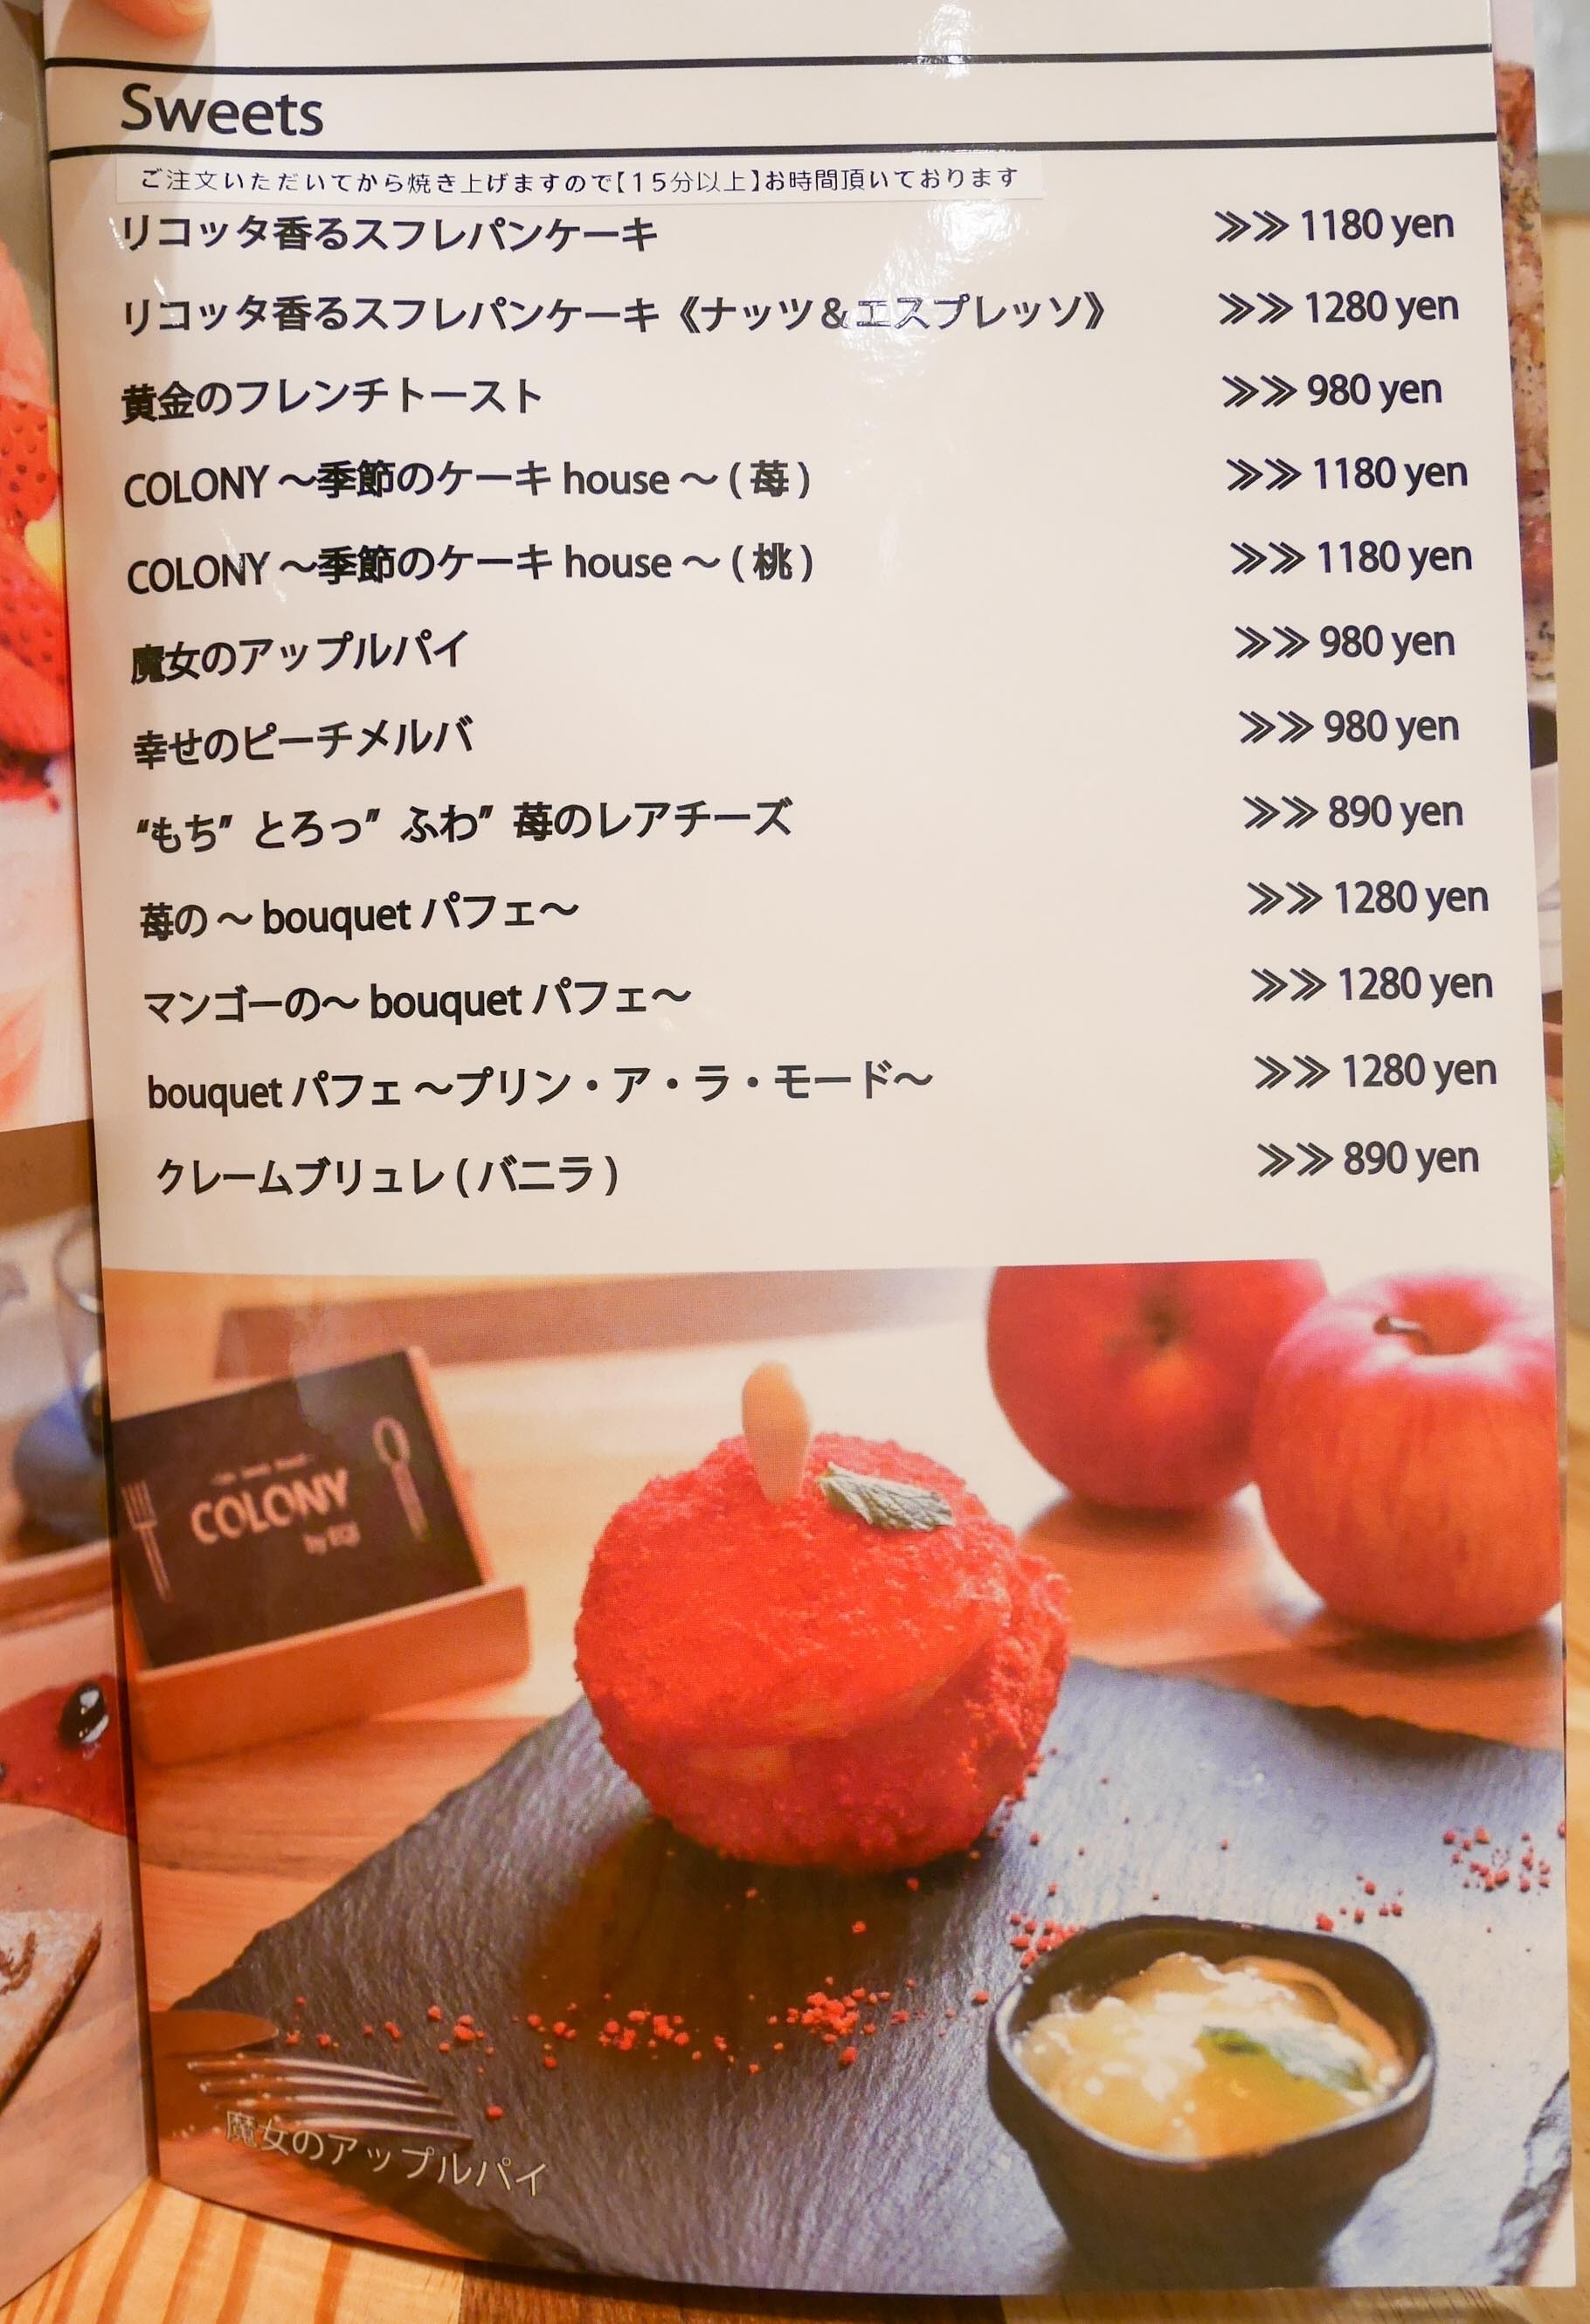 Sweets
ご注文いただいてから焼き上げますので【15分以上】お時間頂いております
リコッタ香るスフレパンケーキ ≫≫ 1180 yen
リコッタ香るスフレパンケーキ《ナッツ＆エスプレッソ》 ≫≫ 1280 yen
黄金のフレンチトースト ≫≫ 980 yen
COLONY ～季節のケーキ house ～ ( 苺 ) ≫≫ 1180 yen
COLONY ～季節のケーキ house ～ ( 桃 ) ≫≫ 1180 yen
魔女のアップルパイ ≫≫ 980 yen
幸せのピーチメルバ ≫≫ 980 yen
“もち” とろっ” ふわ” 苺のレアチーズ ≫≫ 890 yen
苺の ～ bouquet パフェ～ ≫≫ 1280 yen
マンゴーの～ bouquet パフェ～ ≫≫ 1280 yen
bouquet パフェ ～プリン・ア・ラ・モード～ ≫≫ 1280 yen
クレームブリュレ ( バニラ ) ≫≫ 890 yen
COLONY
by EQI
魔女のアップルパイ